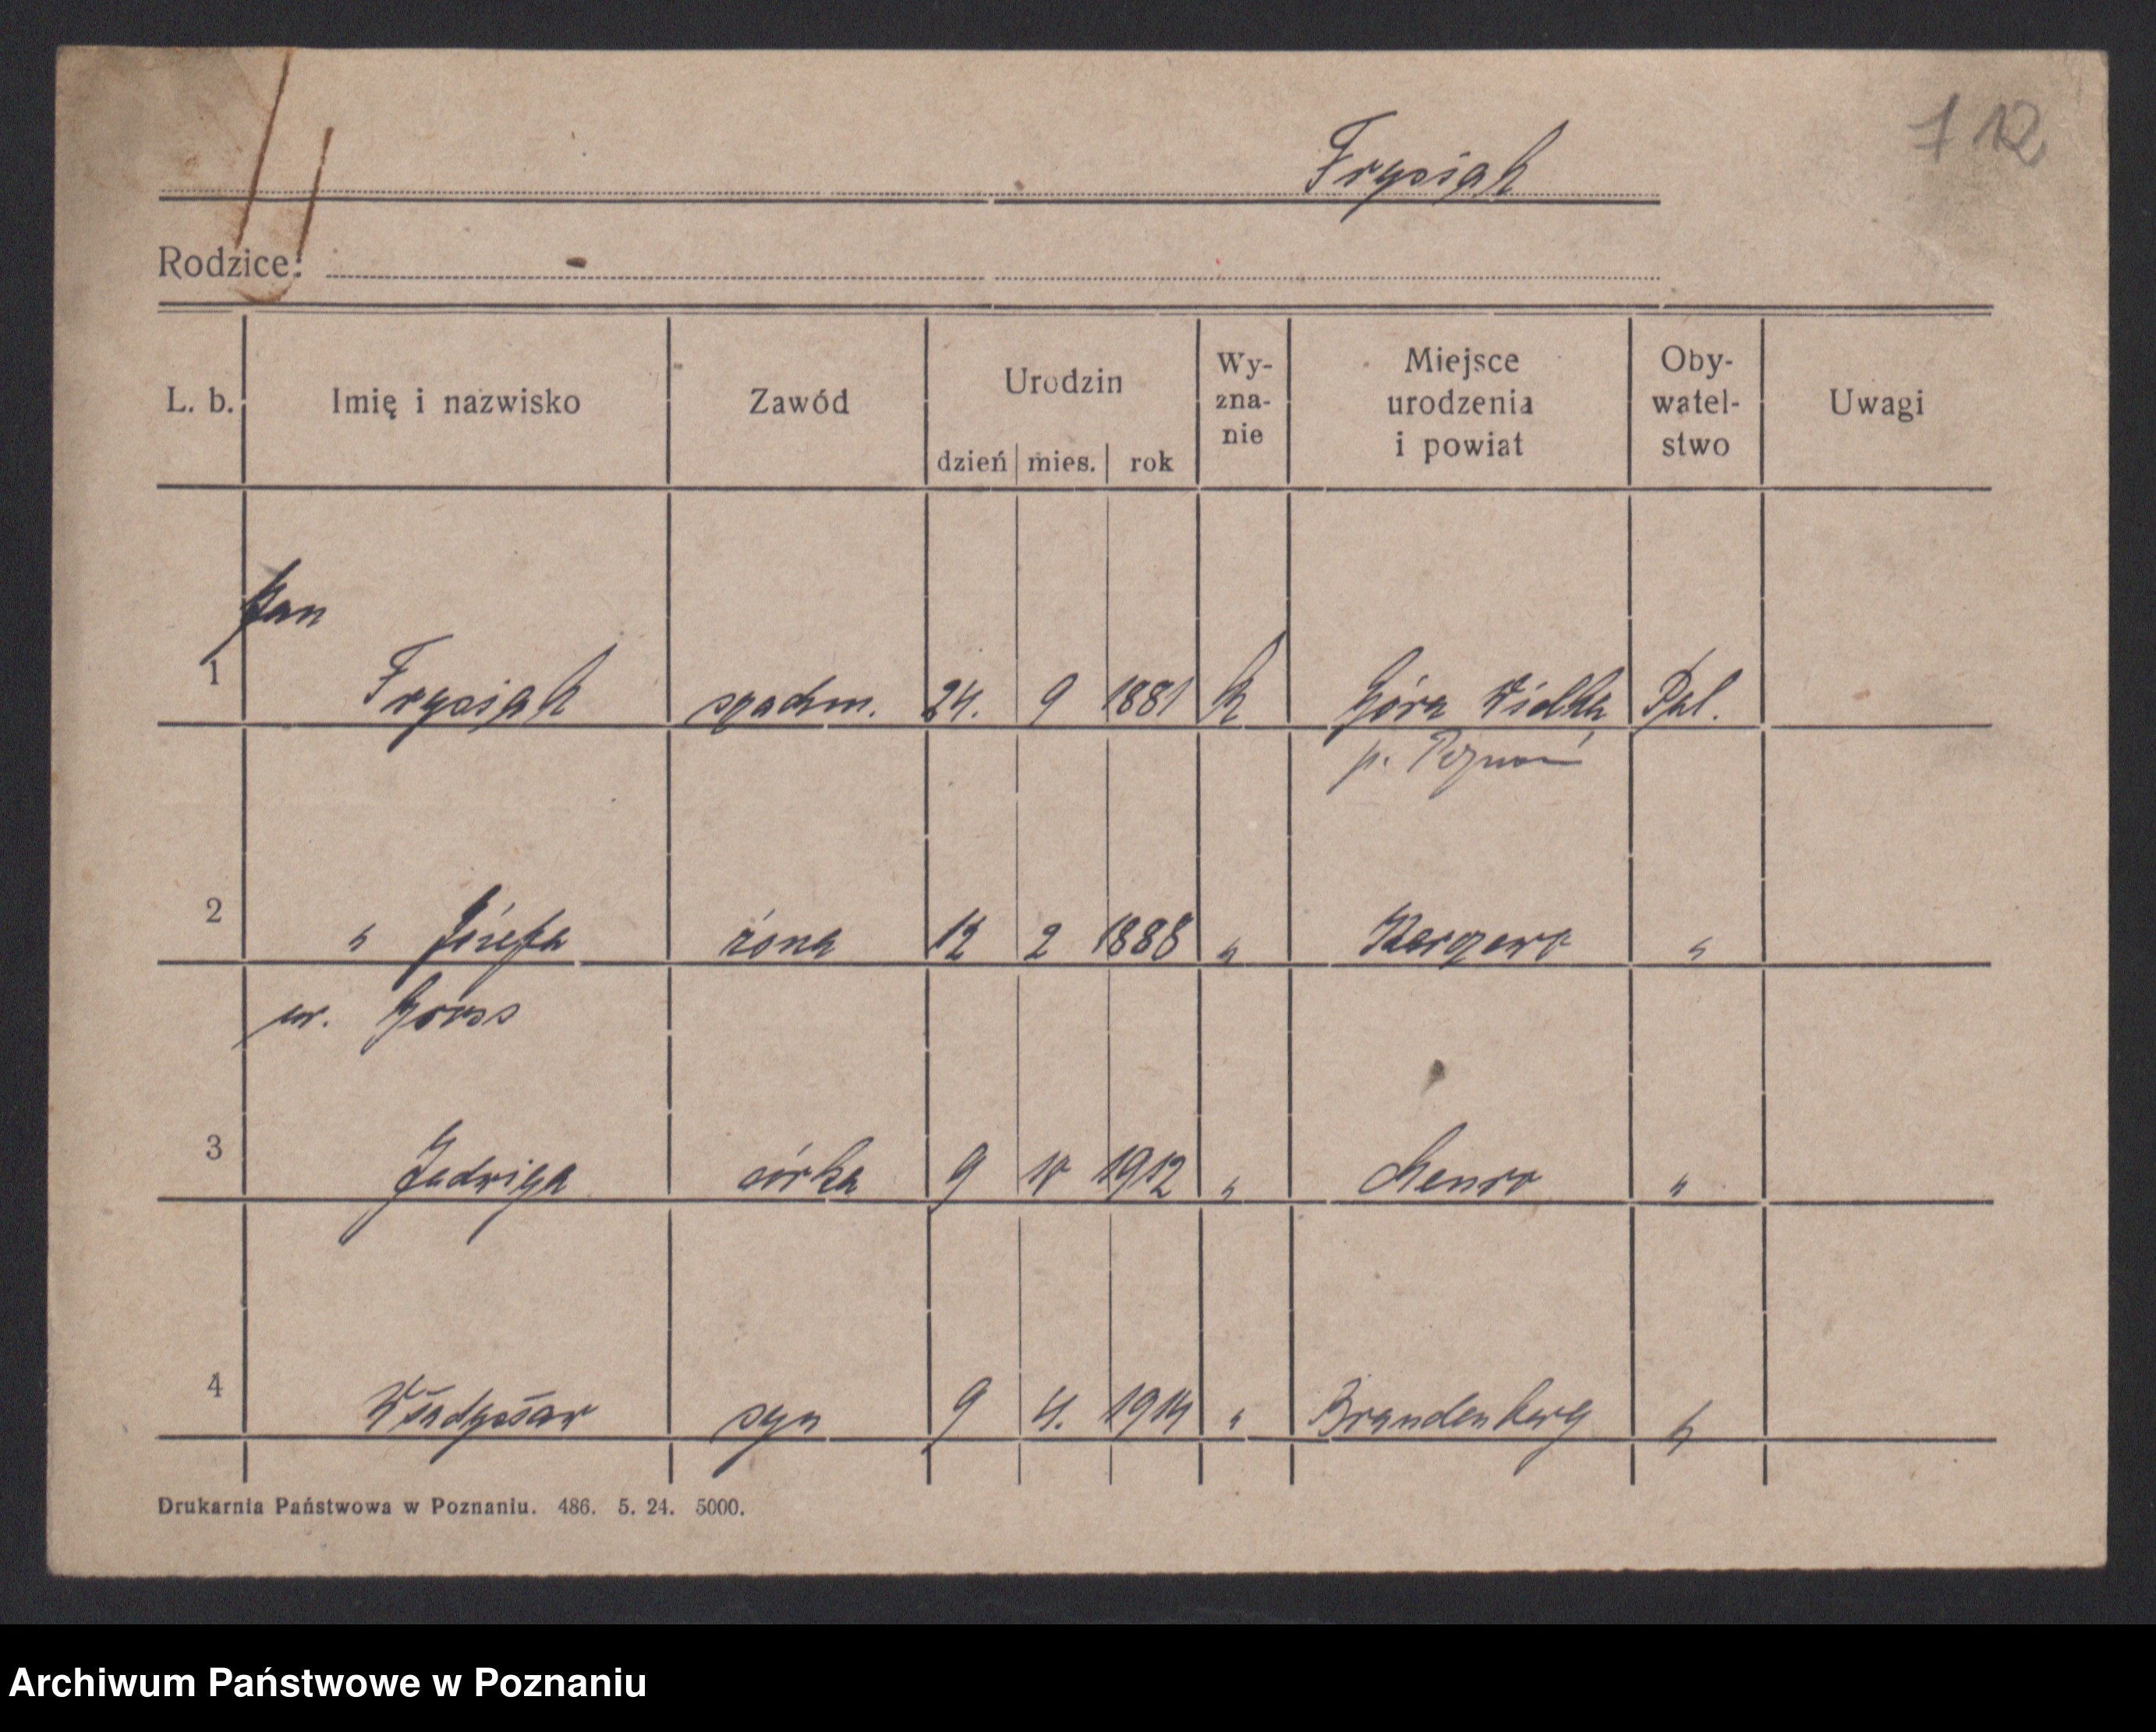 112
Frysiak
Rodzice:
L. b. Imię i nazwisko Zawód Urodzin dzień mies. rok Wy-zna-nie Miejsce urodzenia i powiat Oby-watel-stwo Uwagi
Jan
1 Frysiak 24. 9 1881 k Góra Wielka Pol.
p. Poznań
2 " Józefa żona 12 2 1888 " "
ur.
3 Jadwiga córka 9 10 1912 " "
4 Władysław syn 9 4. 1914 " Brandenberg "
Drukarnia Państwowa w Poznaniu. 486. 5. 24. 5000.
Archiwum Państwowe w Poznaniu